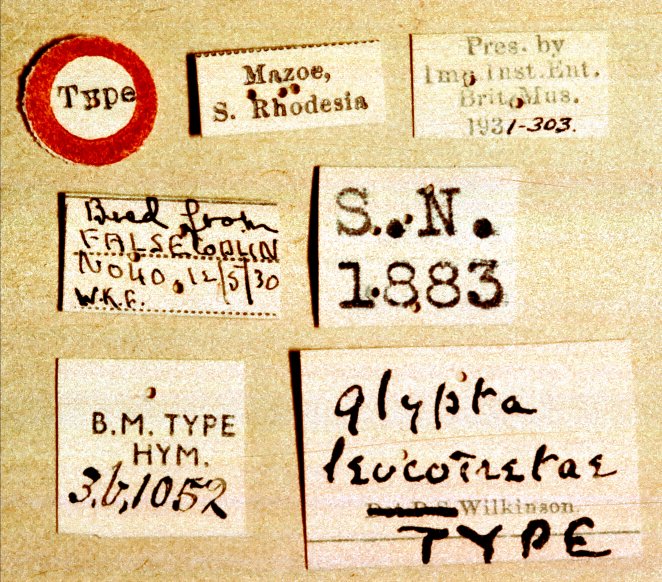 Type
Mazoe,
S. Rhodesia
Pres. by
Imp. Inst. Ent.
Brit. Mus.
1931-303.
Bred from
FALSE
No 40. 12/5/30
W.K.F.
S. N.
1883
B.M. TYPE
HYM.
3.b,1052
glypta
leucotretae
Wilkinson.
TYPE